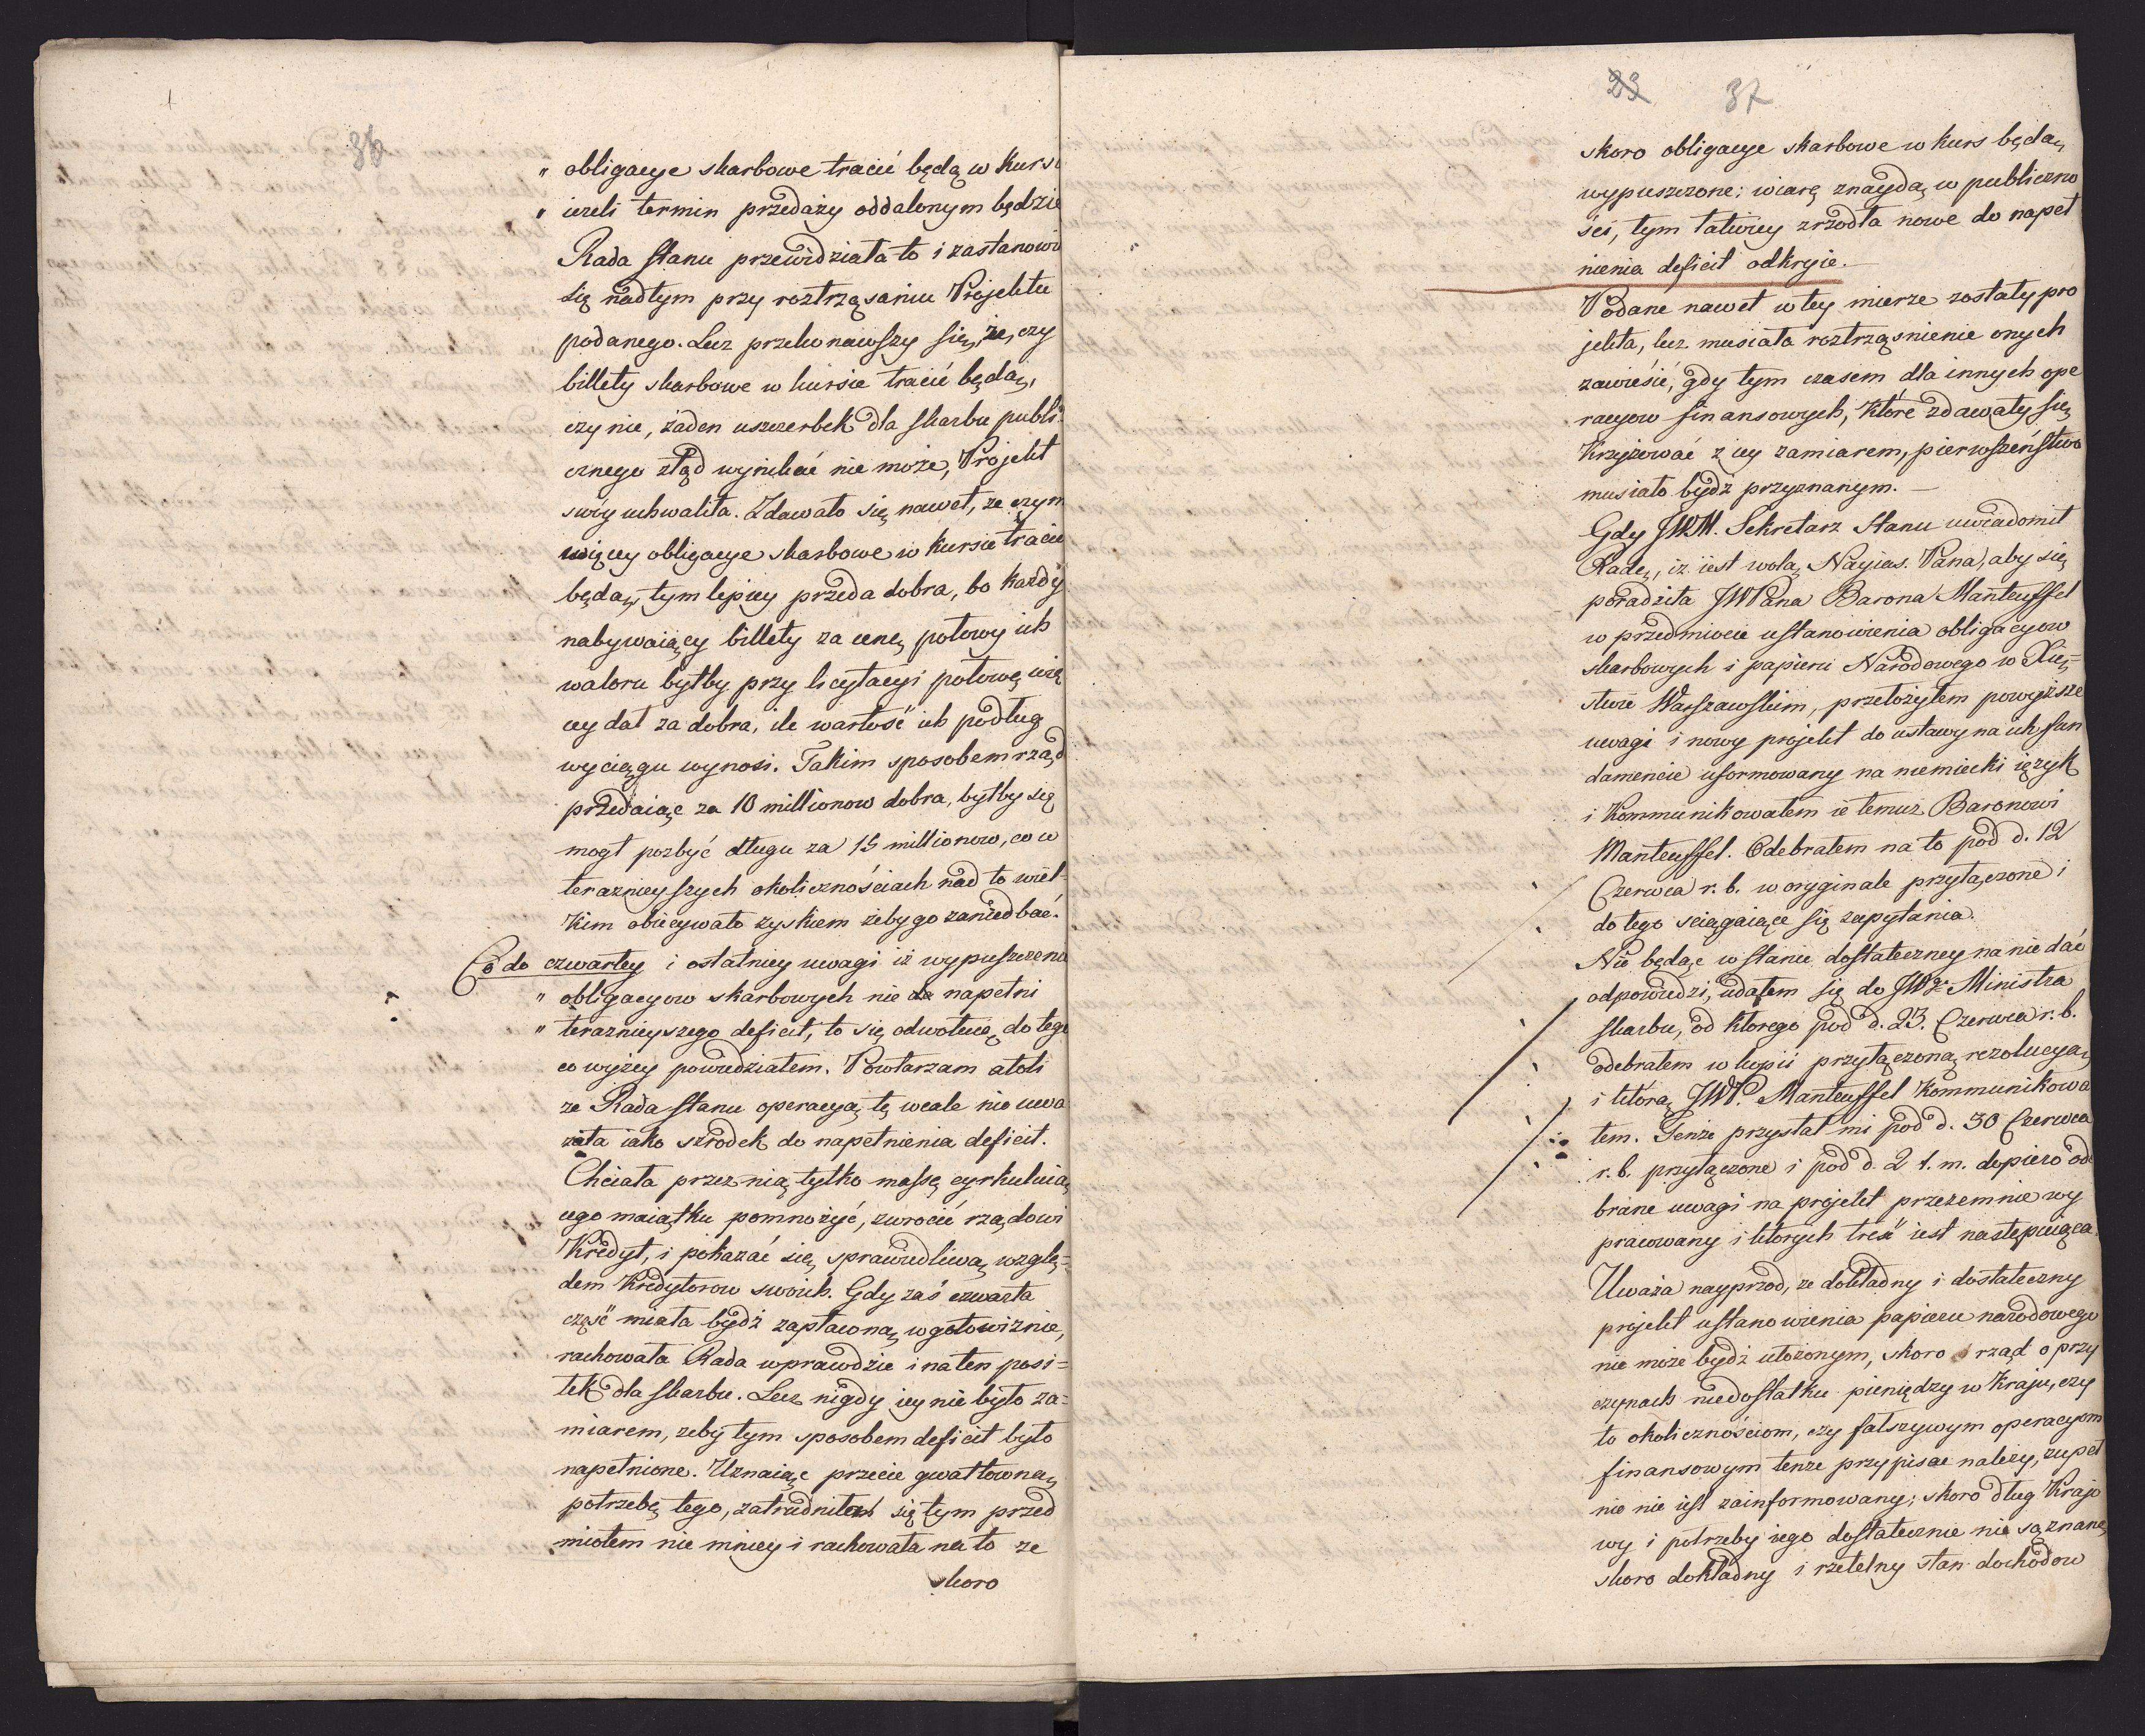 36
" obligacye skarbowe tracić będą w kursi
" ieżeli termin przedaży oddalonym będzie
Rada Stanu przewidziała to i zastanowi
się nad tym przy roztrząsaniu Projektu
podanego. Lecz przekonawszy się, że, czy
billety skarbowe w kursie tracić będą,
czy nie, żaden uszczerbek dla skarbu publi
cznego ztąd wynikać nie może, Projekt
swóy uchwaliła. Zdawało się nawet, że czym
więcey obligacye skarbowe w kursie tracić
będą, tym lepiey przeda dobra, bo każdy
nabywaiący billety za cenę połowy ich
waloru byłby przy licytacyi połowę wię
cey dał za dobra, ile wartość ich podług
wyciągu wynosi. Takim sposobem rząd
przedaiąc za 10 millionow dobra, byłby się
mogł pozbyć długu za 15 millionow, co w
teraznieyszych okolicznościach nad to wiel-
kim obiecywało zyskiem żeby go zaniedbać.
Co do czwartey i ostatniey uwagi iż wypuszczenie
" obligacyow skarbowych nie napełni
" teraznieyszego deficit, to się odwołuię do tego
co wyżey powiedziałem. Powtarzam atoli
że Rada Stanu operacyą tę wcale nie uwa
żała iako szrodek do napełnienia deficit.
Chciała przez nią tylko massę cyrkuluią
cego maiątku pomnożyć, zwrocić rządowi
Kredyt, i pokazać się sprawiedliwą wzglę-
dem Kredytorow swoich. Gdy zaś czwarta
część miała bydź zapłaconą w gotowiznie,
rachowała Rada wprawdzie i na ten posi-
łek dla skarbu. Lecz nigdy iey nie było za-
miarem, żeby tym sposobem deficit było
napełnione. Uznaiąc przecie gwałtowną
potrzebę tego, zatrudniła się tym przed
miotem nie mniey i rachowała na to że
skoro
23 37
skoro obligacye skarbowe w kurs będą
wypuszczone; wiarę znaydą w publiczno
ści, tym łatwiey zrzodła nowe do napeł
nienia deficit odkryie.—
Podane nawet w tey mierze zostały pro
jekta, lecz musiała roztrząsnienie onych
zawiesić, gdy tym czasem dla innych ope
racyow finansowych, które zdawały się
Krzyżować z iey zamiarem, pierwszeństwo
musiało bydź przyznanym.—
Gdy JWM. Sekretarz Stanu uwiadomił
Radę, iż iest wolą Nayias. Pana, aby się
poradziła JWPana Barona Manteuffel
w przedmiocie ustanowienia obligacyow
skarbowych i papieru Narodowego w Xię-
stwie Warszawskim, przełożyłem powyższe
uwagi i nowy projekt do ustawy na ich fun
damencie uformowany na niemiecki ięzyk
i Kommunikowałem ie temuż Baronowi
Manteuffel. Odebrałem na to pod d. 12
Czerwca r. b. w oryginale przyłączone i
do tego ściągaiące się zapytania.
Nie będąc w stanie dostateczney na nie dać
odpowiedzi, udałem się do JWgo Ministra
skarbu, od którego pod d. 23. Czerwca r. b.
odebrałem w kopii przyłączoną rezolucyą,
i którą JWP. Manteuffel Kommunikowa
łem. Tenże przysłał mi pod d. 30 Czerwca
r. b. przyłączone i pod d. 2 t. m. dopiero ode
brane uwagi na projekt przezemnie wy
pracowany i których treść iest następuiąca
Uważa nayprzod, że dokładny i dostateczny
projekt ustanowienia papieru narodowego
nie może bydź ułożonym, skoro rząd o przy
czynach niedostatku pieniędzy w Kraju, czy
to okolicznościom, czy fałszywym operacyom
finansowym tenże przypisać należy, zupeł
nie nie iest zainformowany; skoro dług Krajo
wy i potrzeby iego dostatecznie nie są znane,
skoro dokładny i rzetelny stan dochodow